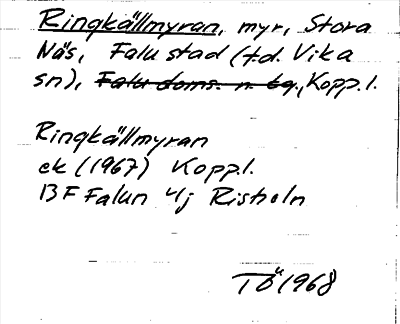 Ringkällmyran, myr, Stora
Näs, Falu stad (t.d. Vika
sn), Falu doms. n. tg., Kopp.l.
Ringkällmyran
ek (1967) Kopp.l.
13 F Falun 4j Risholn
TÖ 1968